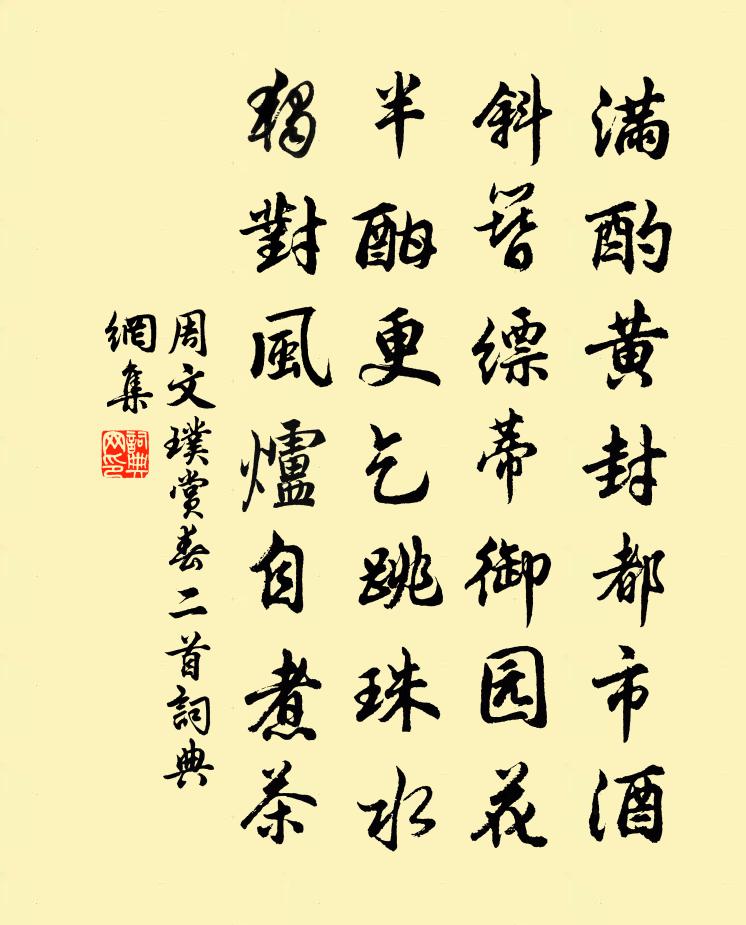 滿酌黃封都市酒
斜簪縹蒂御园花
半酣更乞跳珠水
獨對風爐自煮茶
周文璞賞春二首詞典
網集
詞典
网印